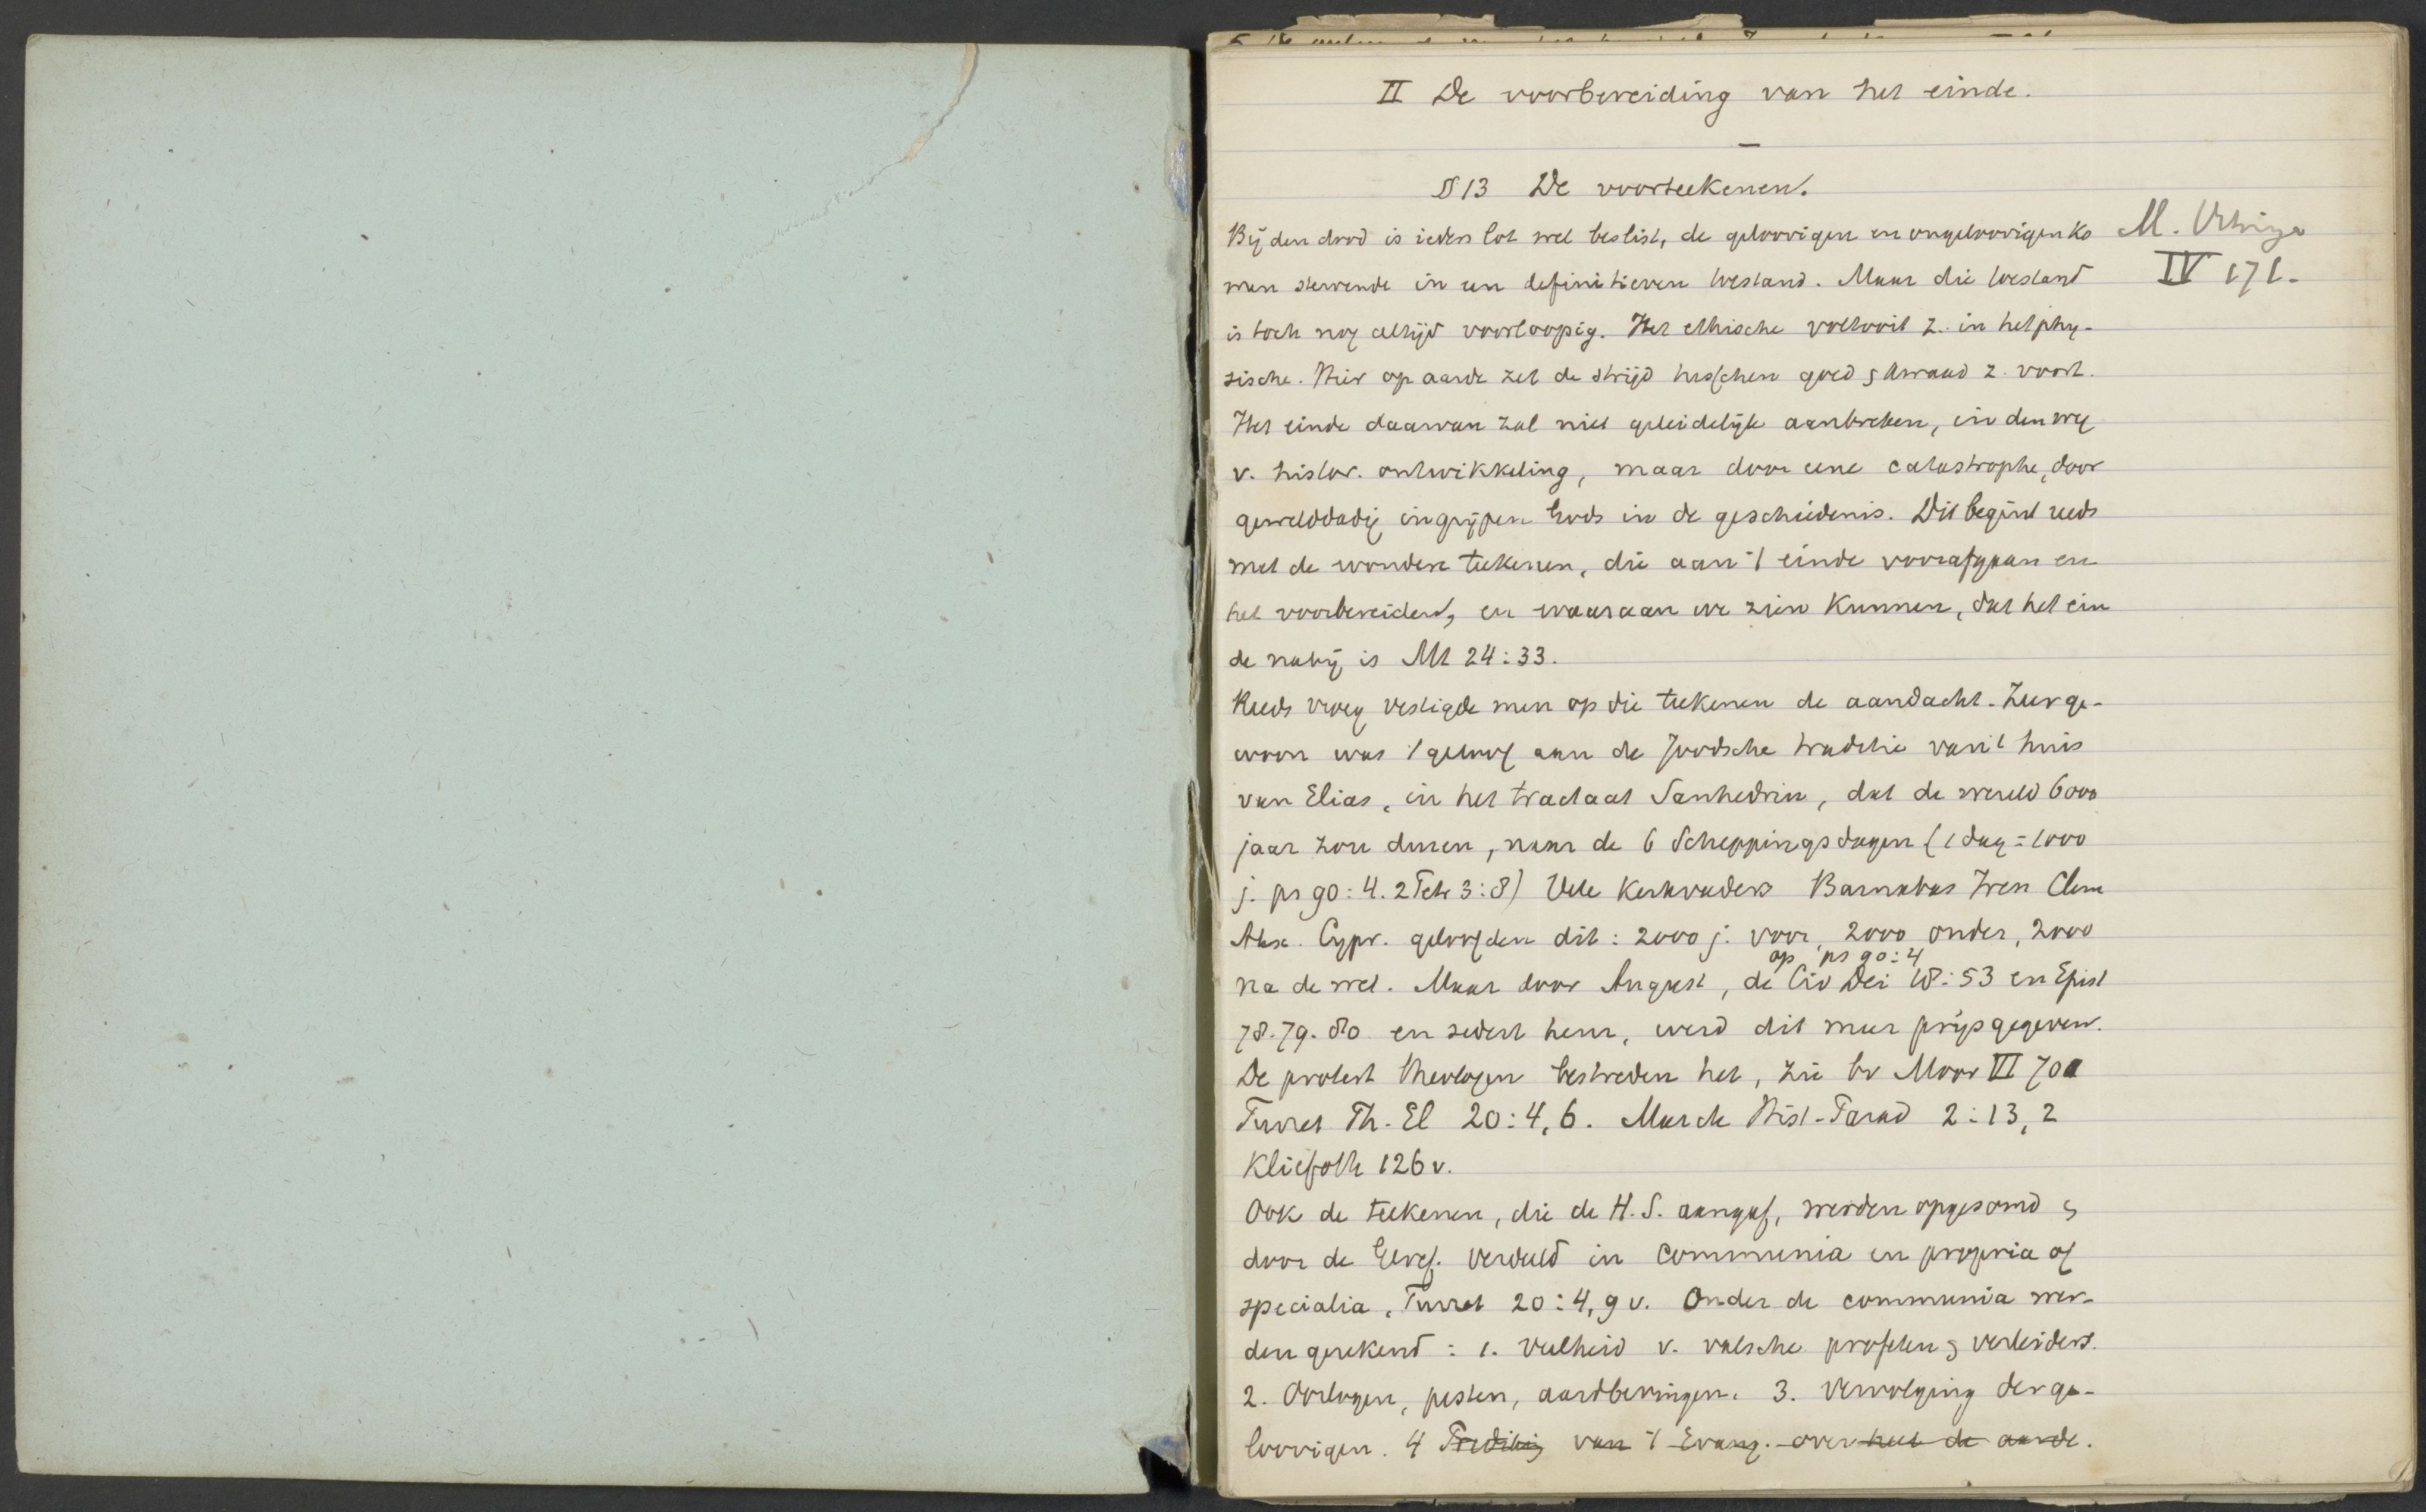 II De voorbereiding van het einde.
§ 13 De voorteekenen.
Bij den dood is ieders lot wel beslist, de geloovigen en ongeloovigen ko
men stervende in een definitieven toestand. Maar die toestand
is toch nog altijd voorloopig. Het ethische voltooit z. in het phy-
sische. Hier op aarde zet de strijd tusschen goed & kwaad z. voort.
Het einde daarvan zal niet geleidelijk aanbreken, in den weg
v. histor. ontwikkeling, maar door eene catastrophe, door
gewelddadig ingrijpen Gods in de geschiedenis. Dit begint reeds
met de wondere teekenen, die aan 't einde voorafgaan en
het voorbereiden, en waaraan we zien kunnen, dat het ein
de nabij is Mt 24:33.
Reeds vroeg vestigde men op die teekenen de aandacht. Zeer ge-
woon was 't geloof aan de Joodsche traditie van 't huis
van Elias, in het tractaat Sanhedrin, dat de wereld 6000
jaar zou duren, naar de 6 Scheppingsdagen (1 dag = 1000
j. ps 90:4. 2 Petr 3:8) Vele Kerkvaders Barnabas Iren Clem
Alex. Cypr. geloofden dit: 2000 j. voor, 2000 onder, 2000
op ps 90:4
na de wet. Maar door August, de Civ Dei 18:53 en Epist
78. 79. 80 en sedert hem, werd dit meer prijsgegeven.
De protest theologen bestreden het, zie bv Moor VI
Turret Th. El 20:4,6. Marck Hist-Parad 2:13,2
Kliefoth 126 v.
Ook de teekenen, die de H. S. aangaf, werden opgesomd &
door de Geref. verdeeld in communia en propria of
specialia, Turret 20:4,9 v. Onder de communia wer-
den gerekend: 1. veelheid v. valsche profeten & verleiders.
2. Oorlogen, pesten, aardbevingen. 3. Vervolging der ge-
loovigen. 4 Prediking van 't Evang. over heel de aarde.
M. Vitringa
IV 171.